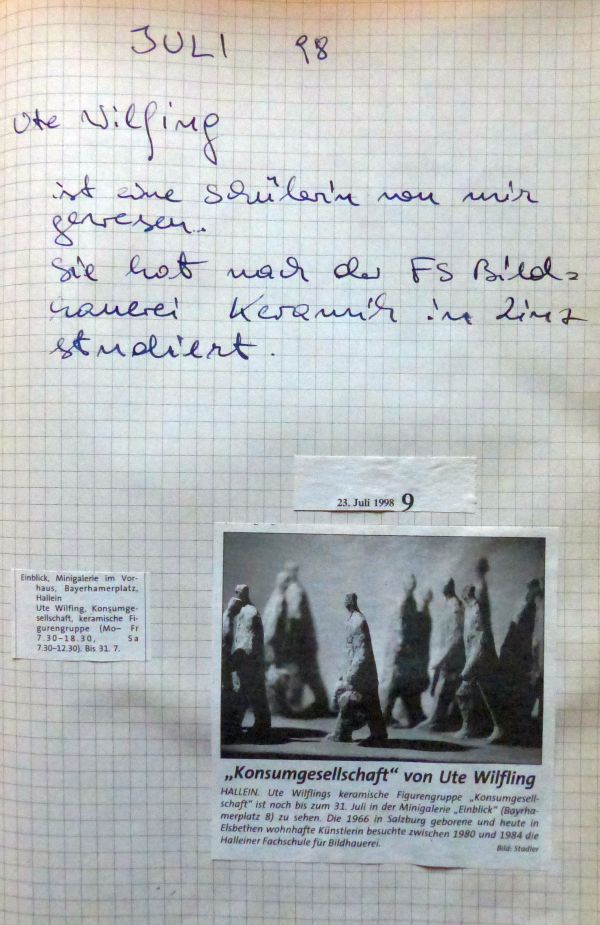 JULI 98
Ute Wilfing
ist eine Schülerin von mir
gewesen.
Sie hat nach der FS Bild=
hauerei Keramik in Linz
studiert.
23. Juli 1998 9
Einblick, Minigalerie im Vor-
haus, Bayerhamerplatz,
Hallein
Ute Wilfing, Konsumge-
sellschaft, keramische Fi-
gurengruppe (Mo– Fr
7.30–18.30, Sa
7.30–12.30). Bis 31. 7.
„Konsumgesellschaft“ von Ute Wilfling
HALLEIN. Ute Wilflings keramische Figurengruppe „Konsumgesell-
schaft“ ist noch bis zum 31. Juli in der Minigalerie „Einblick“ (Bayrha-
merplatz 8) zu sehen. Die 1966 in Salzburg geborene und heute in
Elsbethen wohnhafte Künstlerin besuchte zwischen 1980 und 1984 die
Halleiner Fachschule für Bildhauerei.
Bild: Stadler